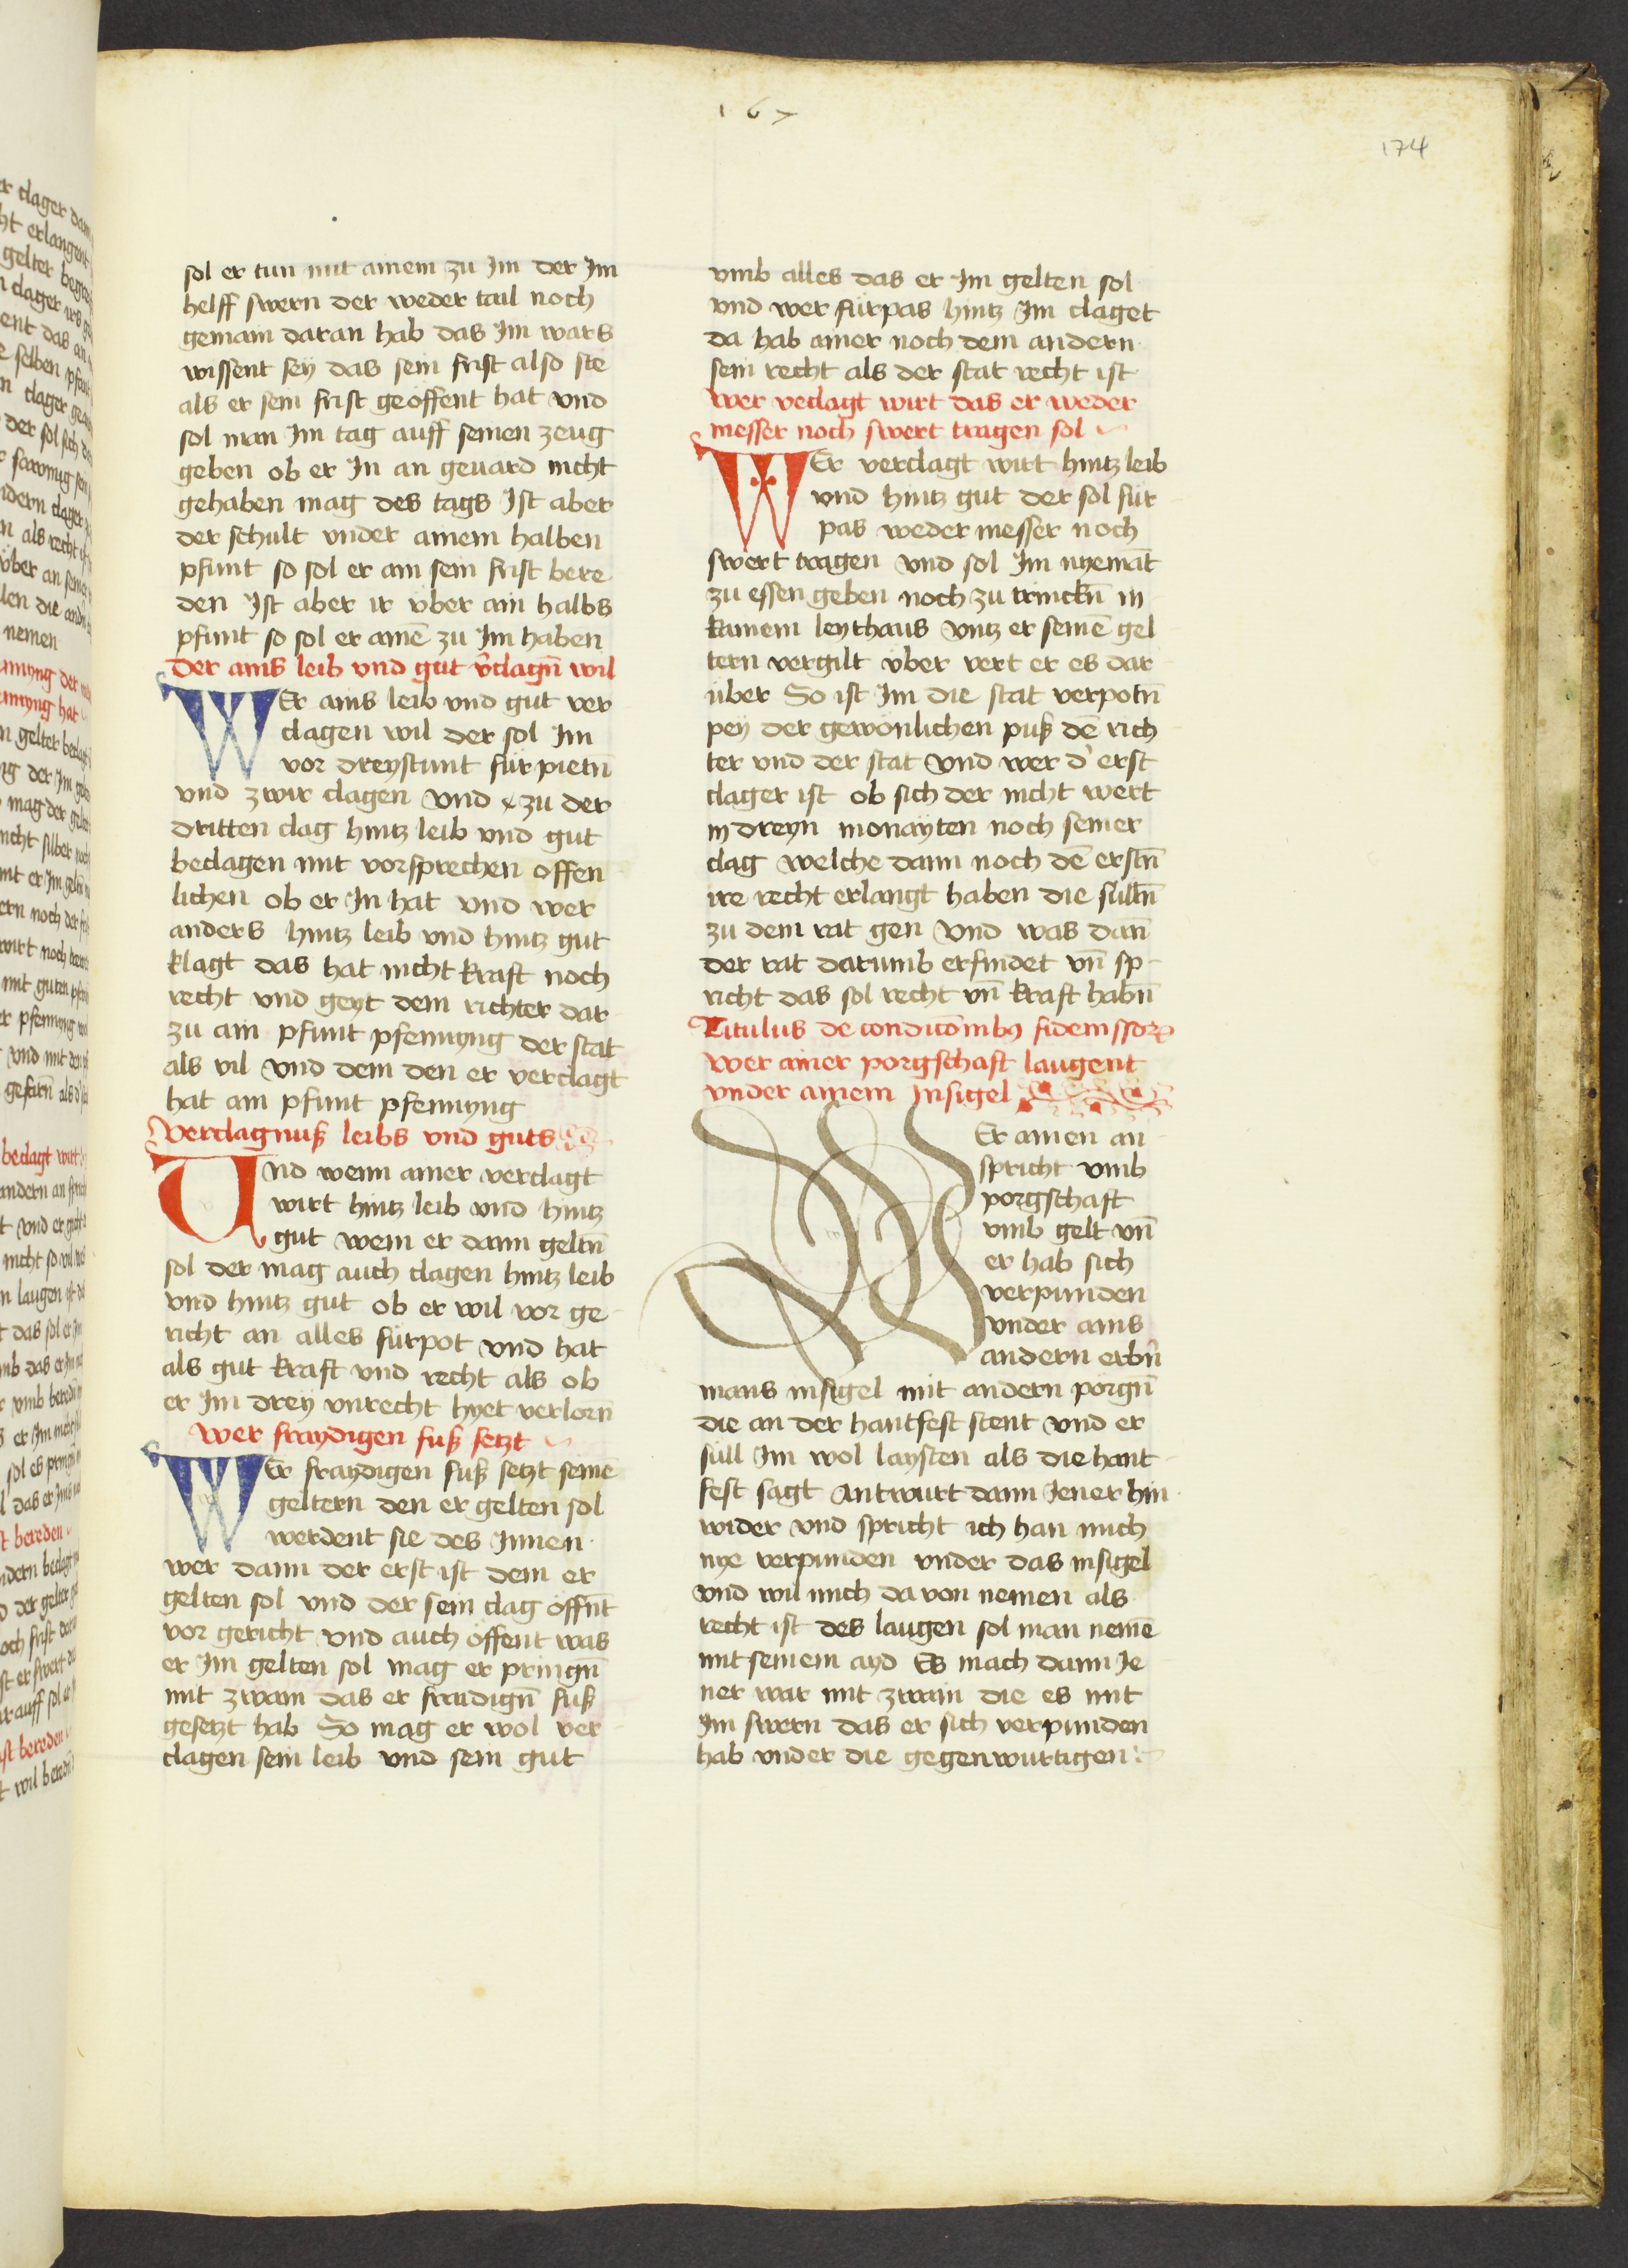 167
174
sol er tun mit ainem zu Im der Im
helff swern der weder tail noch
gemain daran hab das Im wars
wissent sey das sein frist also ste
als er sein frist geöffent hat vnd
sol man Im tag auff seinen zeug
geben ob er In an geuard nicht
gehaben mag des tags Ist aber
der schult vnder ainem halben
pfunt so sol er ain sein frist bere
den Ist aber ir vber ain halbs
pfunt so sol er ainē zu Im haben
Der ains leib vnd gut v̄clagn̄ wil
WEr ains leib vnd gut ver
clagen wil der sol Im
vor dreystunt für pietn̄
vnd zwir clagen vnd zu der
dritten clag hintz leib vnd gut
beclagen mit vorsprechen offen
lichen ob er In hat vnd wer
anders hintz leib vnd hintz gut
klagt das hat nicht kraft noch
recht vnd geyt dem richter dar
zu ain pfunt pfennyng der stat
als vil vnd dem den er verclagt
hat ain pfunt pfennyng
Verclagnuß leibs vnd guts
Und wenn ainer verclagt
wirt hintz leib vnd hintz
gut wem er dann geltn̄
sol der mag auch clagen hintz leib
vnd hintz gut ob er wil vor ge
richt an alles fürpot vnd hat
als gut kraft vnd recht als ob
er Im drey vnrecht hyet verlorn̄
Wer fraydigen fuß setzt
WEr fraydigen fuß setzt seinē
geltern den er gelten sol
werdent sie des Innen
wer dann der erst ist dem er
gelten sol vnd der sein clag öffn̄t
vor gericht vnd auch öffent was
er Im gelten sol mag er pringn̄
mit zwain das er fraidign̄ fuß
gesetzt hab So mag er wol ver
clagen sein leib vnd sein gut
vmb alles das er Im gelten sol
vnd wer fürpas hintz Im claget
da hab ainer noch dem andern
sein recht als der stat recht ist
Wer veclagt wirt das er weder
messer noch swert tragen sol
WEr verclagt wirt hintz leib
vnd hintz gut der sol für
pas weder messer noch
swert tragen vnd sol Im nyemāt
zu essen geben noch zu trinckn̄ in
kainem leythaus vntz er seinē gel
tern vergilt vber vert er es dar
über So ist Im die stat verpotn̄
pey der gewönlichen puß dē rich
ter vnd der stat vnd wer d' erst
clager ist ob sich der nicht wert
in dreyn monayten noch seiner
clag welche dann noch dē erstn̄
ire recht erlangt haben die sülln̄
zu dem rat gen vnd was dan̄
der rat darumb erfindet vn̄ sp
richt das sol recht vn̄ kraft habn̄
Wer ainer porgschaft laugent
vnder ainem Insigel
WEr ainen an
spricht vmb
porgschaft
vmb gelt vn̄
er hab sich
verpunden
vnder ains
andern erbn̄
mans insigel mit andern porgn̄
die an der hantfest stent vnd er
süll Im wol laysten als die hant
fest sagt Antwurt dann Jener hin
wider vnd spricht ich han mich
nye verpunden vnder das insigel
vnd wil mich da von nemen als
recht ist des laugen sol man nemē
mit seinem ayd Es mach dann Je
ner war mit zwain die es mit
Im swern das er sich verpunden
hab vnder die gegenwurtigen